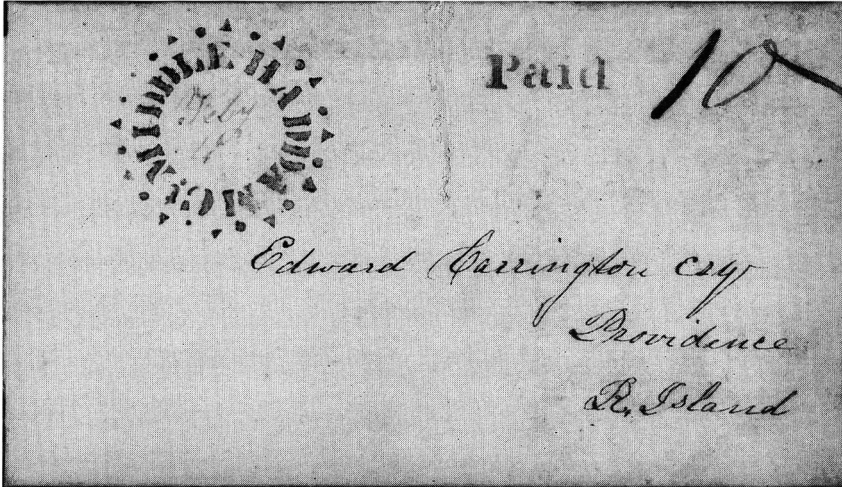 MIDDLE HADDAM CT
Feby
Paid 10
Edward Carrington Esq
Providence
R. Island